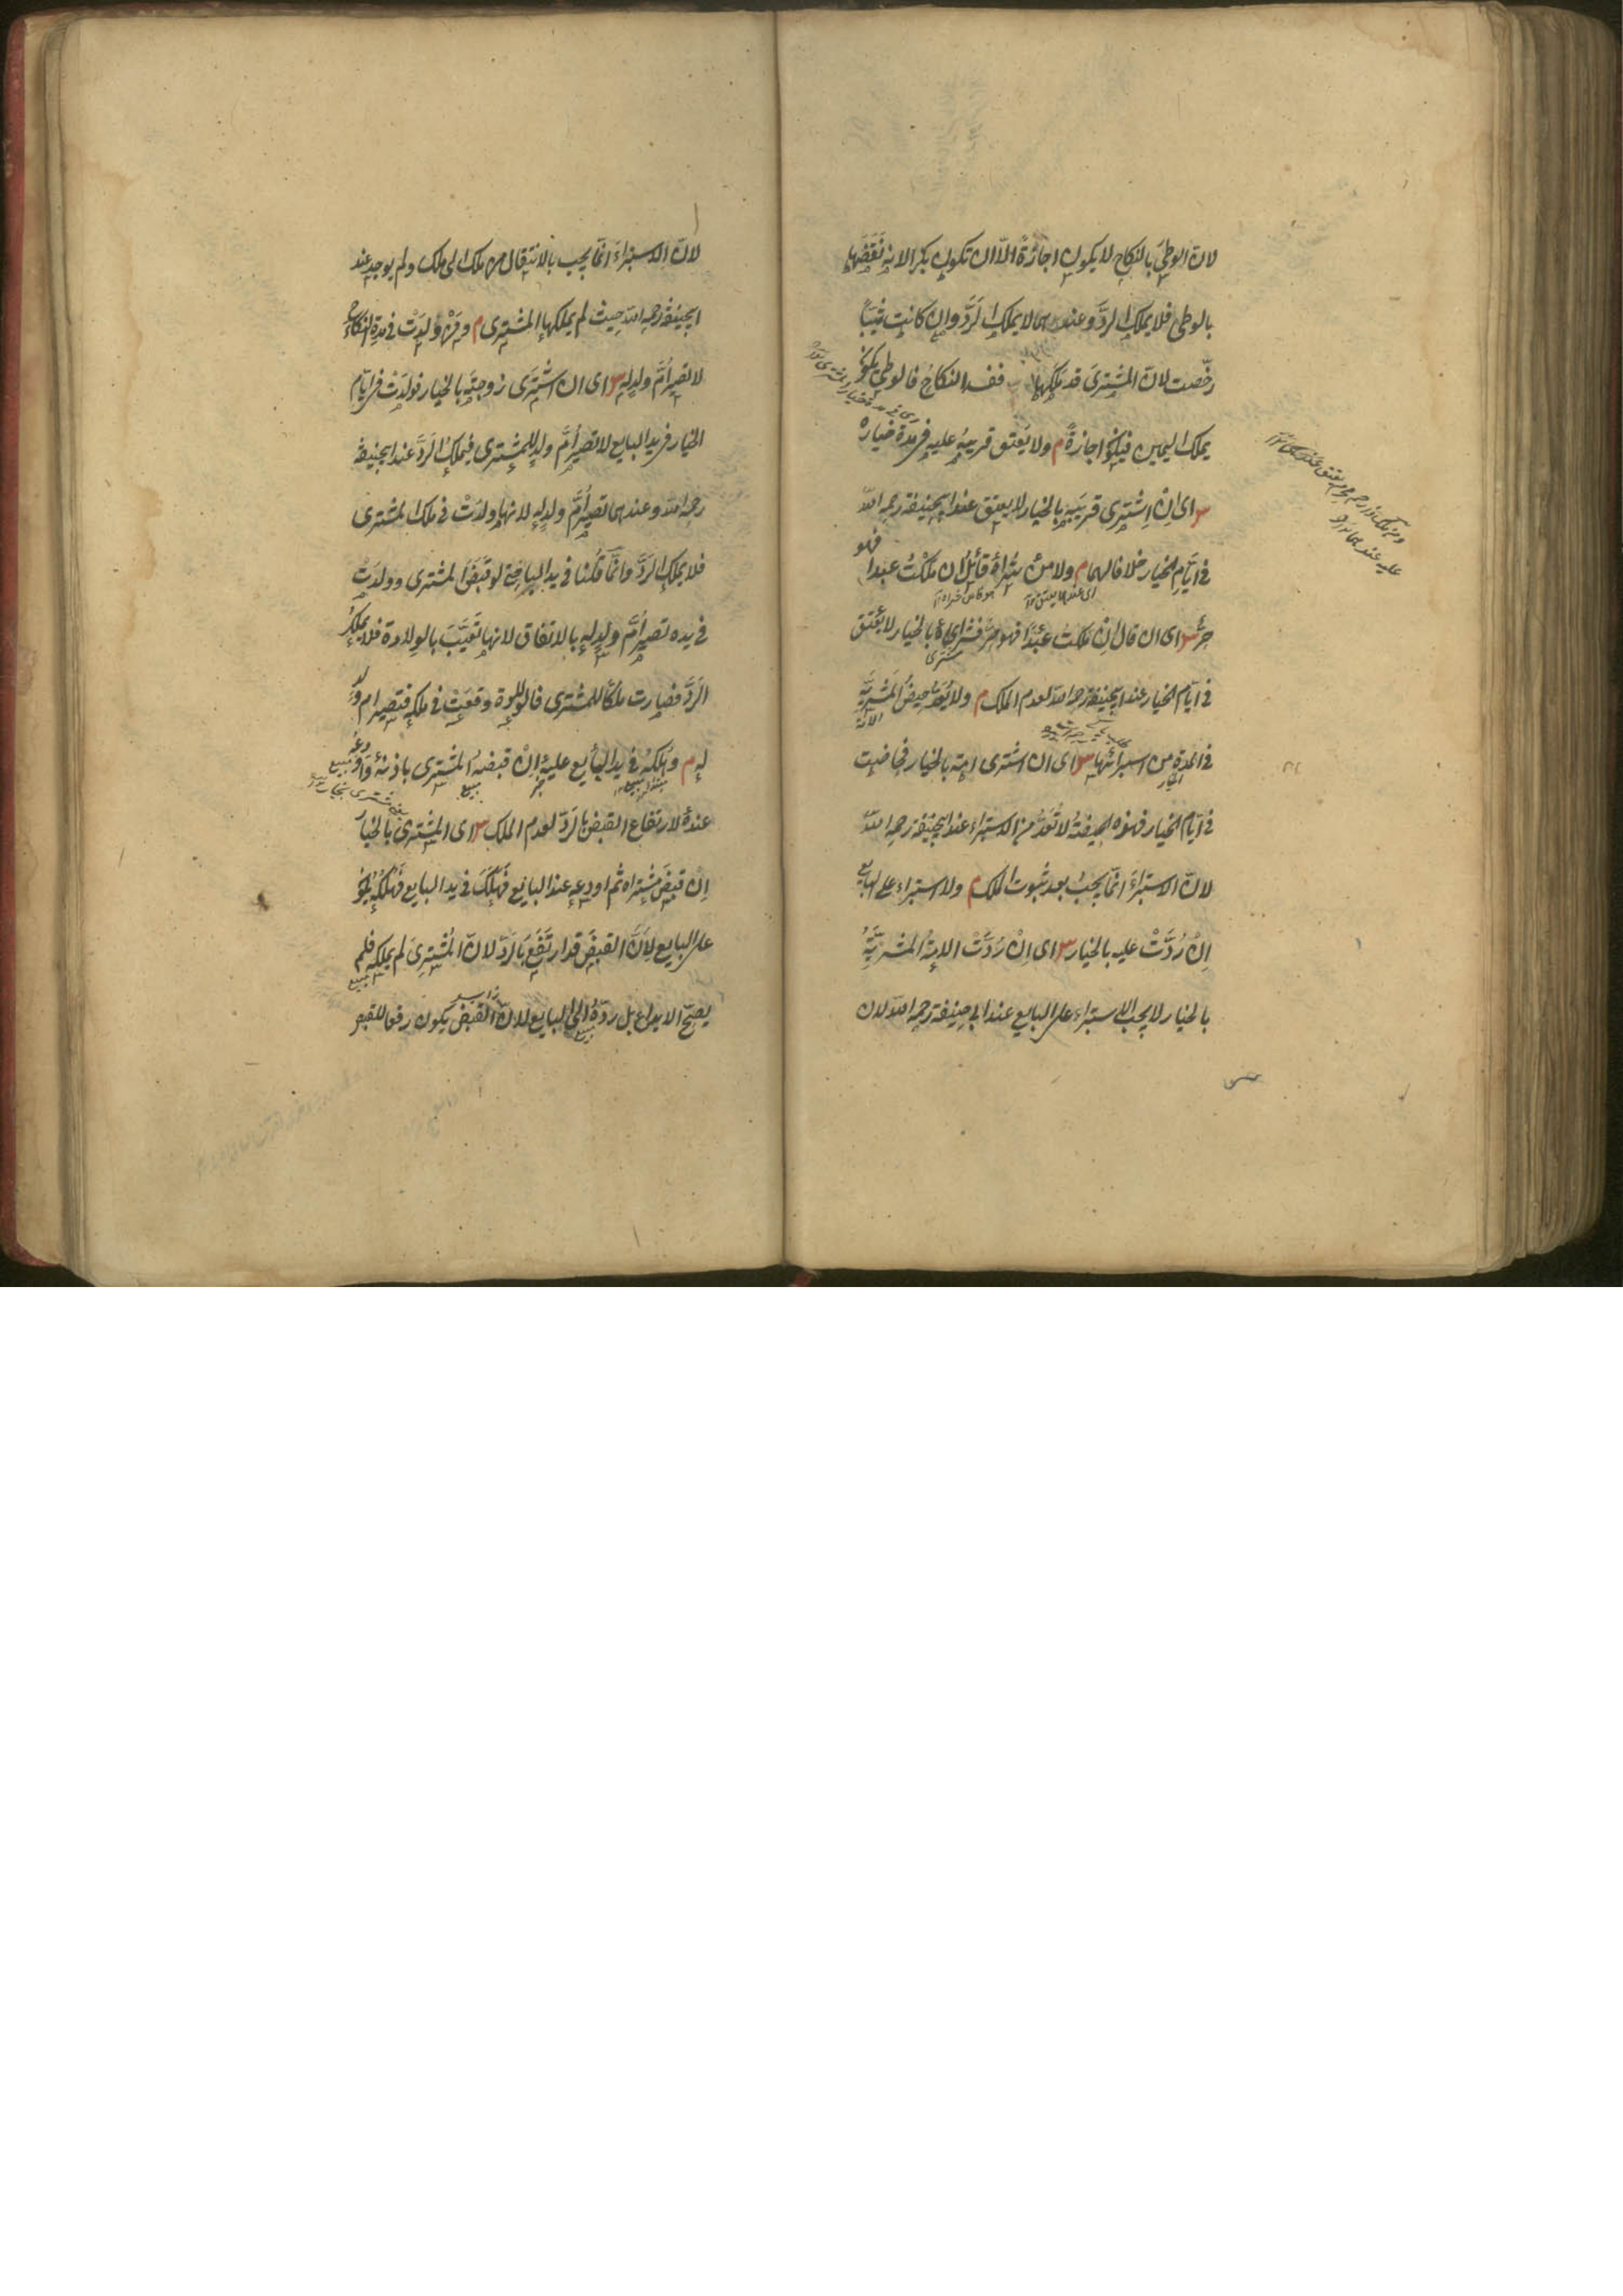 لانّ الوطئ بالنكاح لا يكون اجازةً الّا ان تكون بكرا لانه نَقَصَها
بالوطئ فلا يملك الردَّ وعندهما لا يملك الردَّ وان كانت ثيّبًا
لانّ المشترىَ قد ملكها ففسد النكاحُ فالوطئ يكون
بملك اليمين فيكون اجازةً م ولا يَعتق قريبُه عليه فى مدّة خياره
س اى ان اشترى قريبَه بالخيار لا يعتق عند ابيحنيفة رحمه الله
فى ايّام الخيار خلافا لهما م ولا من شراه قائلٌ ان ملكْتُ عبدا فهو
حرٌّ س اى ان قال اِن ملكتُ عبدًا فهو حرٌّ فشراه بالخيار لا يعتق
فى ايّام الخيار عند ابيحنيفة رحمه الله لعدم الملك م ولا يُعَدّ حيضُ المشريَّةِ
فى المدّة من استبرائها س اى ان اشترى امةً بالخيار فحاضت
فى ايّام الخيار فهذه الحيضةُ لا تُعَدُّ من الاستبراء عند ابيحنيفة رحمه الله
لانّ الاستبراءَ انّما يجبُ بعد ثبوت الملك م ولا استبراء على البايع
اِنْ رُدَّتْ عليه بالخيار س اى اِنْ رُدَّت الامةُ المشريَّةُ
بالخيار لا يجب الاستبراء على البايع عند ابى حنيفة رحمه الله لان
لانّ الاستبراءَ انّما يجب بالانتقال من ملك الى ملك ولم يوجد عند
ابيحنيفة رحمه الله حيث لم يملكها المشترى م ومَنْ وَلَدَتْ فى مدّة النكاح
لا تصير أُمَّ ولدٍ له س اى ان اشترَى زوجتَه بالخيار فولدَتْ فى ايّام
الخيار فى يد البايع لا تصير أُمَّ ولدٍ للمشترى فيملك الردَّ عند ابيحنيفة
رحمه الله وعندهما تصير أُمَّ ولدٍ له لانها ولدَتْ فى ملك المشترى
فلا يملك الردَّ وانّما قلنا فى يد البايع حتى لو قبضَ المشترى وولدَتْ
فى يده تصير أُمَّ ولدٍ له بالاتفاق لانها تعيَّبَت بالولادة فلا يملك
الردَّ فصارت ملكًا للمشترى فالولادة وقعَتْ فى ملكه فتصير ام ولد
له م وهُلْكُه فى يد البايع عليه اِنْ قبضه المشترى باذنه واودعه
عنده لارتفاع القبض بالردّ لعدم الملك س اى المشترى بالخيار
اِنْ قبضَ مشتراه ثم اودعه عند البايع فهلَكَ فى يد البايع فهُلْكُه يكون
على البايع لِانَّ القبضَ قد ارتفَعَ بالردّ لانّ المشترىَ لم يملكه فلم
يصحّ الايداع بل ردّه الى البايع لانّ القبض يكون رفعا للقبض